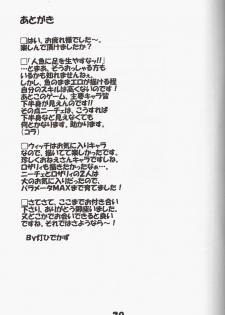 あとがき
□はい、お疲れ様でした〜。
楽しんで頂けましたか？
□「人魚に足を生やすなっ!!」
…とまあ、そうおっしゃる方も
いるかも知れませんねぇ。
しかし、魚のままエロが描ける程
自分のスキルは高くないのです！
あとこのゲーム、主要キャラ皆
下半身が見えんのです!!
その点ニーチェは、こうすれば
下半身など見えなくても
何とかなります。助かります。
(コラ)
□ウィッチはお気に入りキャラ
なので、描いてて楽しかったです。
珍しくおねえさんキャラですしね。
ロザリィも描きたかったなぁ…
ニーチェとロザリィの2人は
大のお気に入りだったので、
パラメータMAXまで育てました！
□さてさて、ここまでお付き合い
下さり、ありがとう御座いました。
又どこかでお会いできると良い
ですね、それではさようなら〜！
By灯ひでかず
30